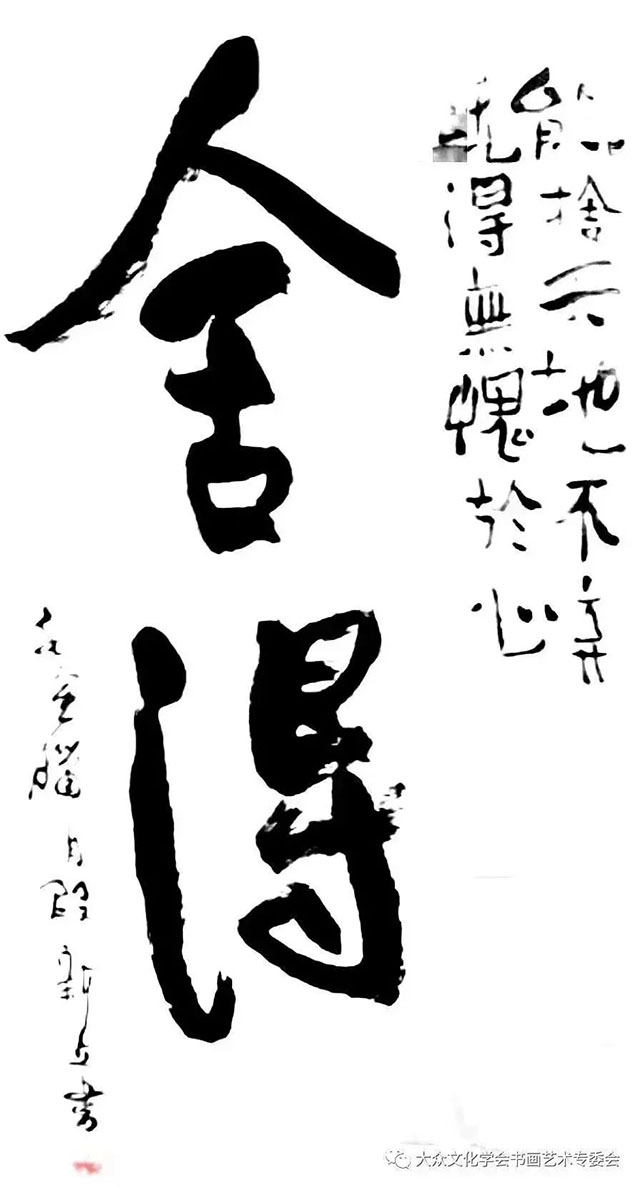 能捨天地不弃
得無愧於心
舍得
月段新書
大众文化学会书画艺术专委会